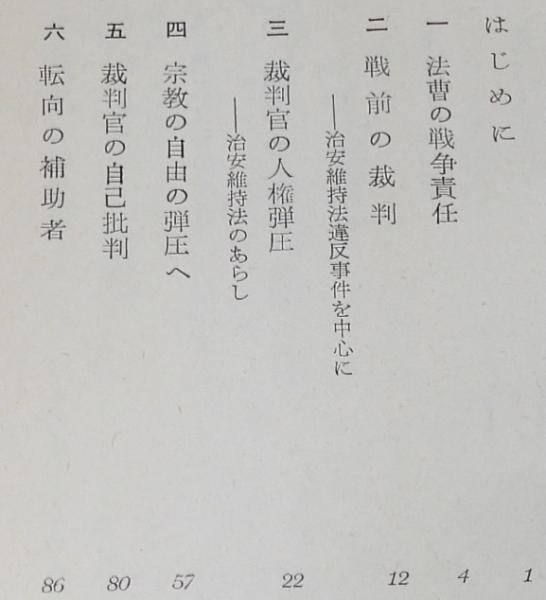 はじめに 1
一 法曹の戦争責任 4
二 戦前の裁判 12
――治安維持法違反事件を中心に
三 裁判官の人権弾圧 22
――治安維持法のあらし
四 宗教の自由の弾圧へ 57
五 裁判官の自己批判 80
六 転向の補助者 86